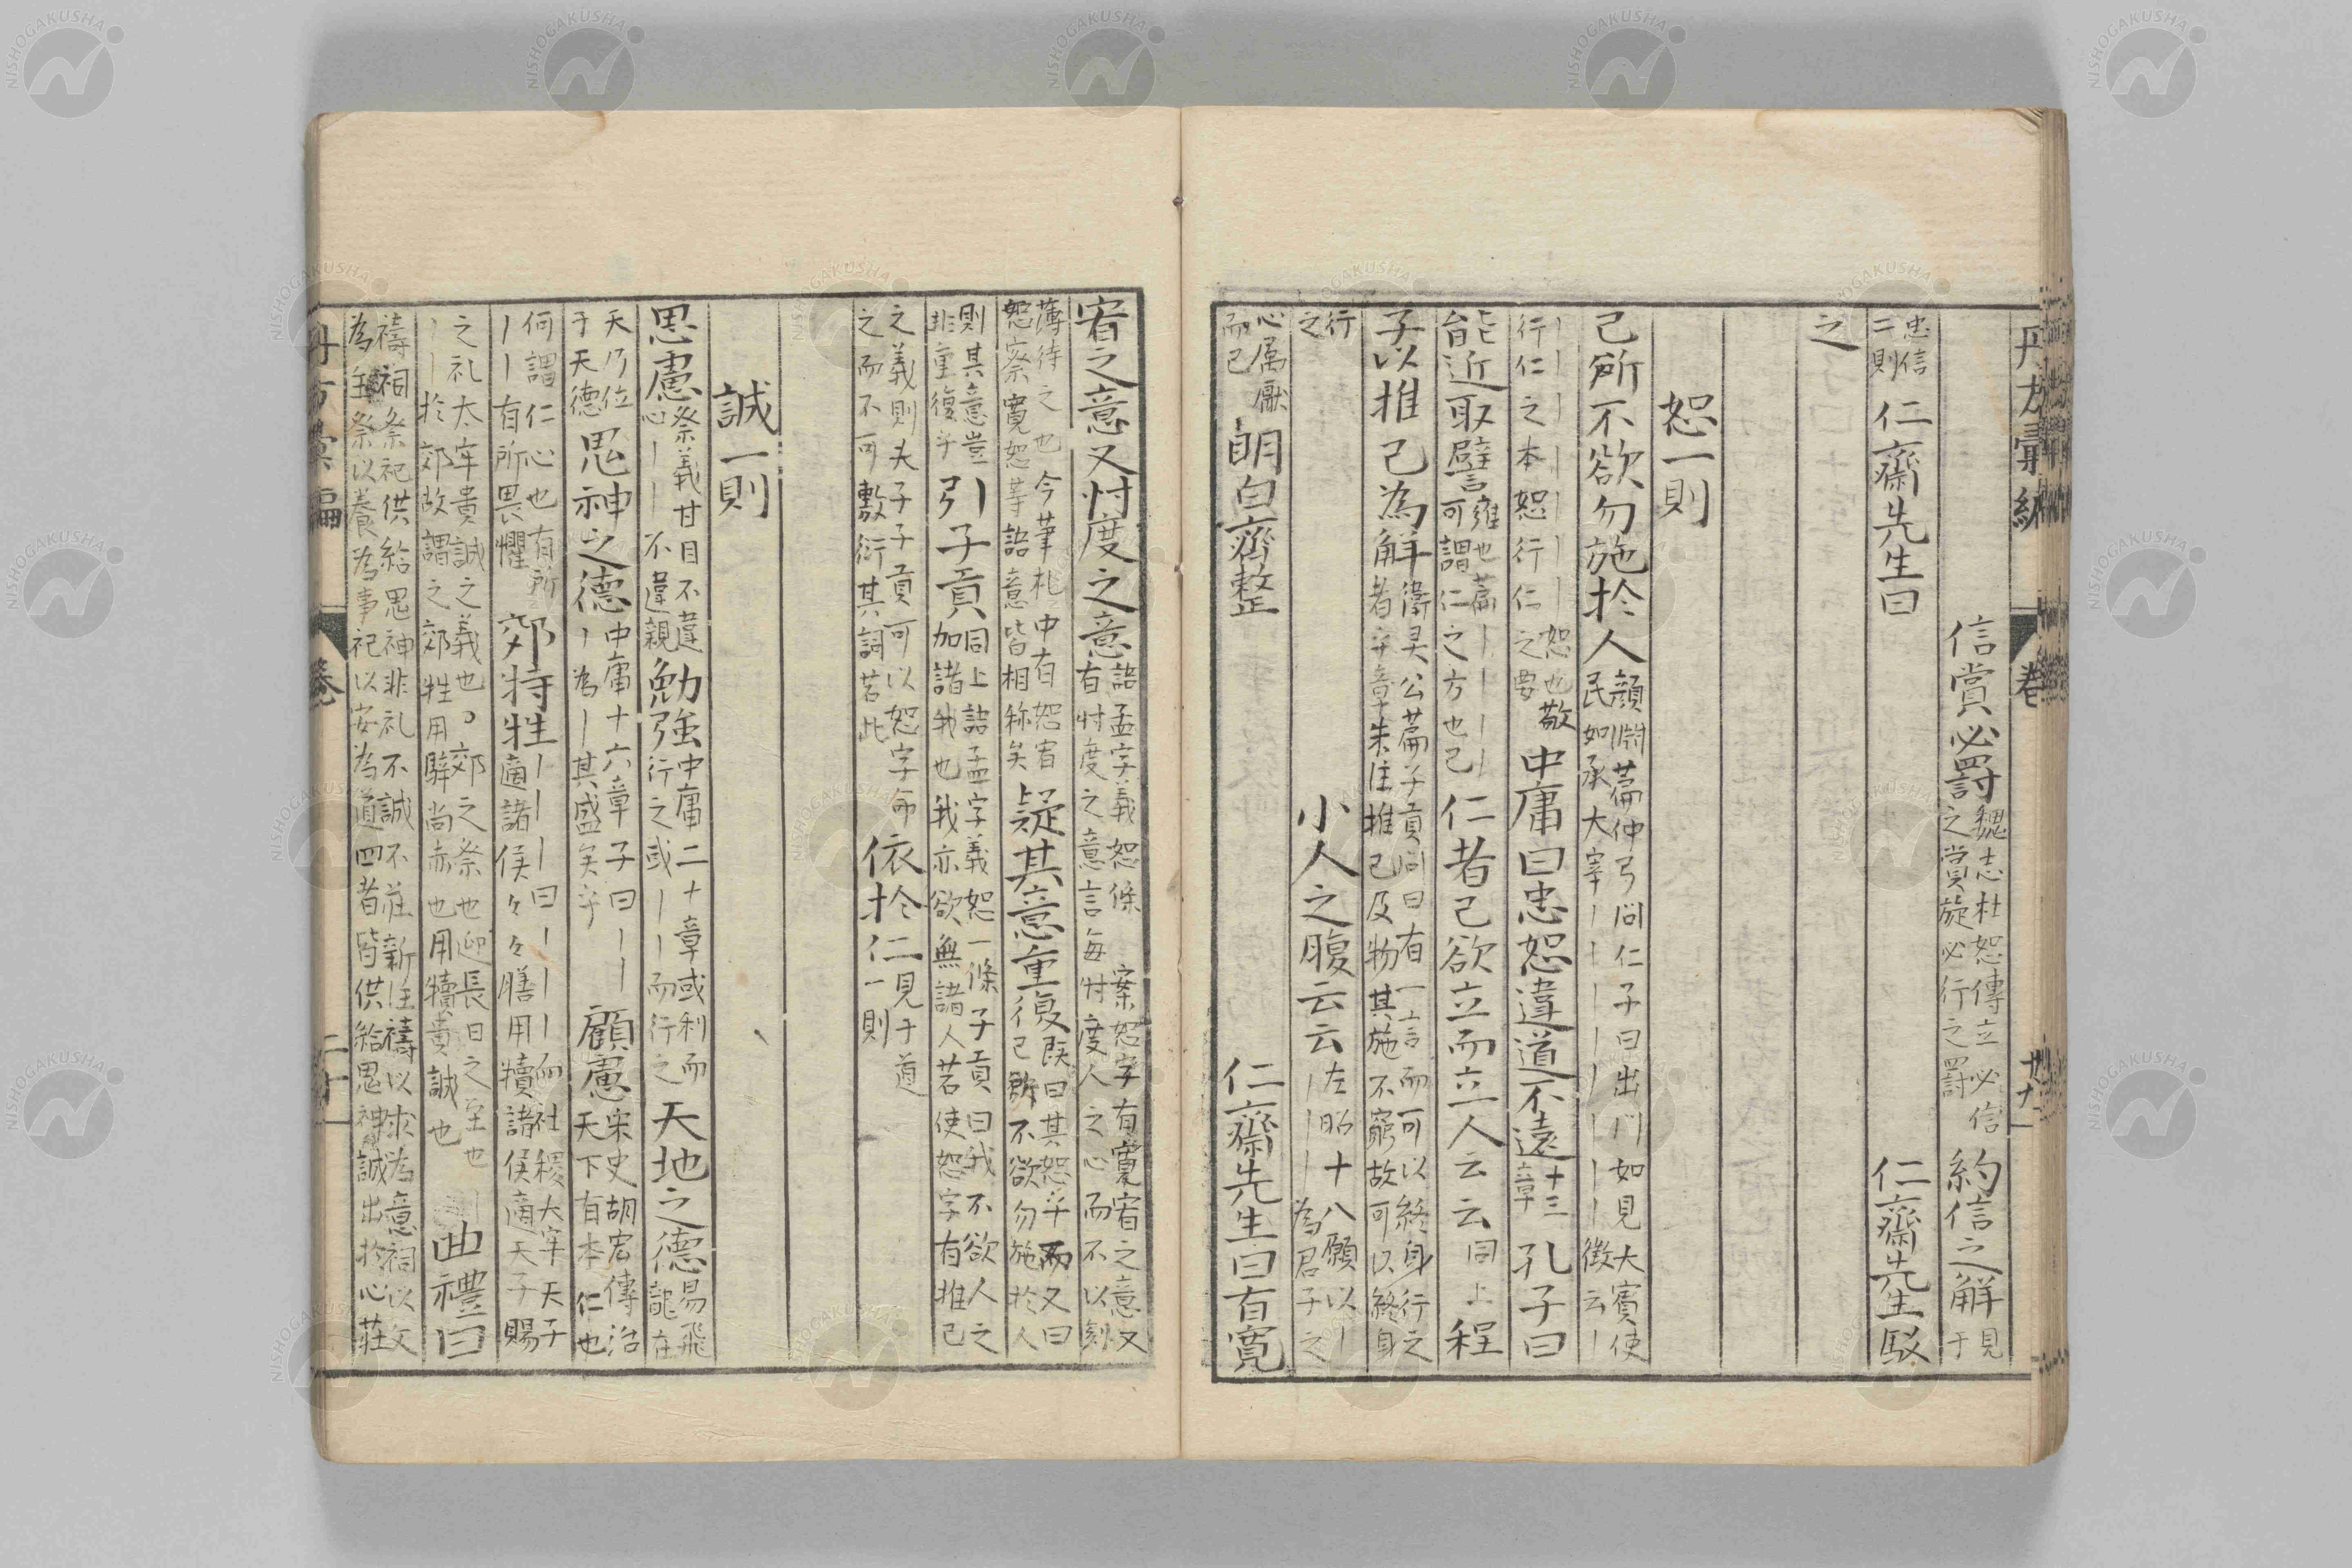 信賞必罰 魏志杜恕傳立必信
之賞旋必行之罰 約信之解 見
于
忠信
二則 仁齋先生曰 仁齋先生駁
之
恕一則
己所不欲勿施於人 顏淵篇仲弓問仁子曰出門如見大賓使
民如承大宰 徴云
恕也敬
行仁之本恕行仁之要 中庸曰忠恕違道不遠 十三
章 孔子曰
能近取譬 雍也篇
可謂仁之方也已 仁者己欲立而立人云云 同上 程
子以推己為解 衛灵公篇子貢問曰有一言而可以終身行之
者乎章朱注推己及物其施不窮故可以終身
行
之 小人之腹云云 左昭十八願以
為君子之
心属厭
而已 朗白齊整 仁齋先生曰有寬
宥之意又忖度之意 語孟字義恕條 案恕字有寬宥之意又
有忖度之意言每忖度人之心而不以刻
薄待之也今茟札中有恕宥
恕察寬恕等語意皆相称矣 疑其意重復 既曰其恕乎而又曰
己所不欲勿施於人
則其意豈
非重復乎 引子貢 同上語孟字義恕一條子貢曰我不欲人之
加諸我也我亦欲無諸人若使恕字有推己
之義則夫子子貢可以恕字命
之而不可敷衍其詞若此 依於仁 見于道
一則
誠一則
思慮 祭義甘目不違
心 不違親 勉強 中庸二十章或利而
行之或 而行之 天地之德 易飛
龍在
天乃位
于天德 鬼神之德 中庸十六章子曰
為 其盛矣乎 顧慮 宋史胡宏傳治
天下有本仁也
何謂仁心也有所
有所畏懼 郊特牲 曰 而社稷大宰天子
適諸侯々々膳用犢諸侯適天子賜
之礼太牢貴誠之義也 郊之祭也迎長日之至也
於郊故謂之郊牲用騂尚赤也用犢貴誠也 曲禮曰
禱祠祭祀供給鬼神非礼不誠不莊新注禱以求為意祠以文
為主祭以養為事祀以安為道四者皆供給鬼神誠出於心莊